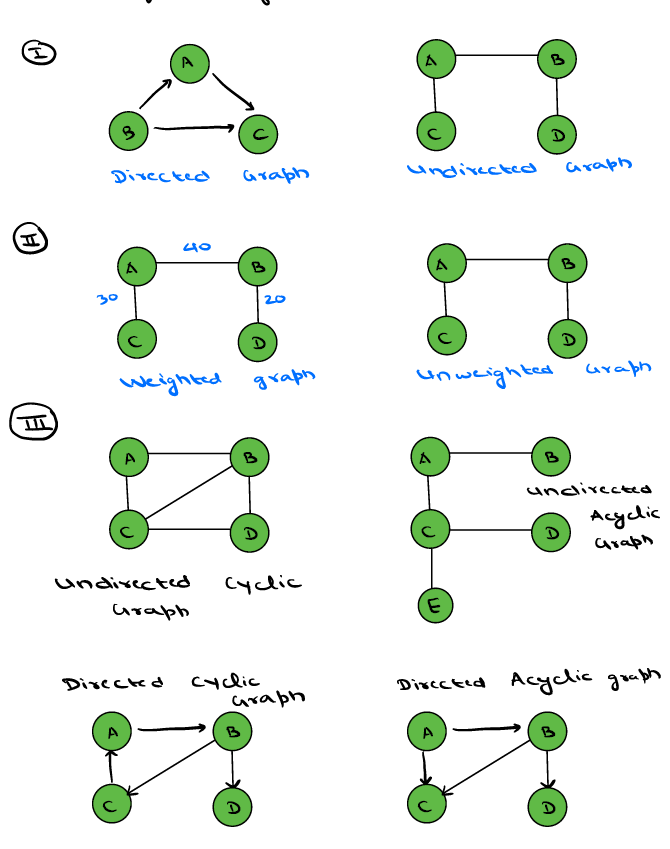 I
A
B
C
Directed Graph
A
B
C
D
Undirected Graph
II
40
A
B
30
20
C
D
Weighted graph
A
B
C
D
Unweighted Graph
III
A
B
C
D
Undirected Cyclic
Graph
A
B
Undirected
Acyclic
Graph
C
D
E
Directed Cyclic
Graph
A
B
C
D
Directed Acyclic graph
A
B
C
D